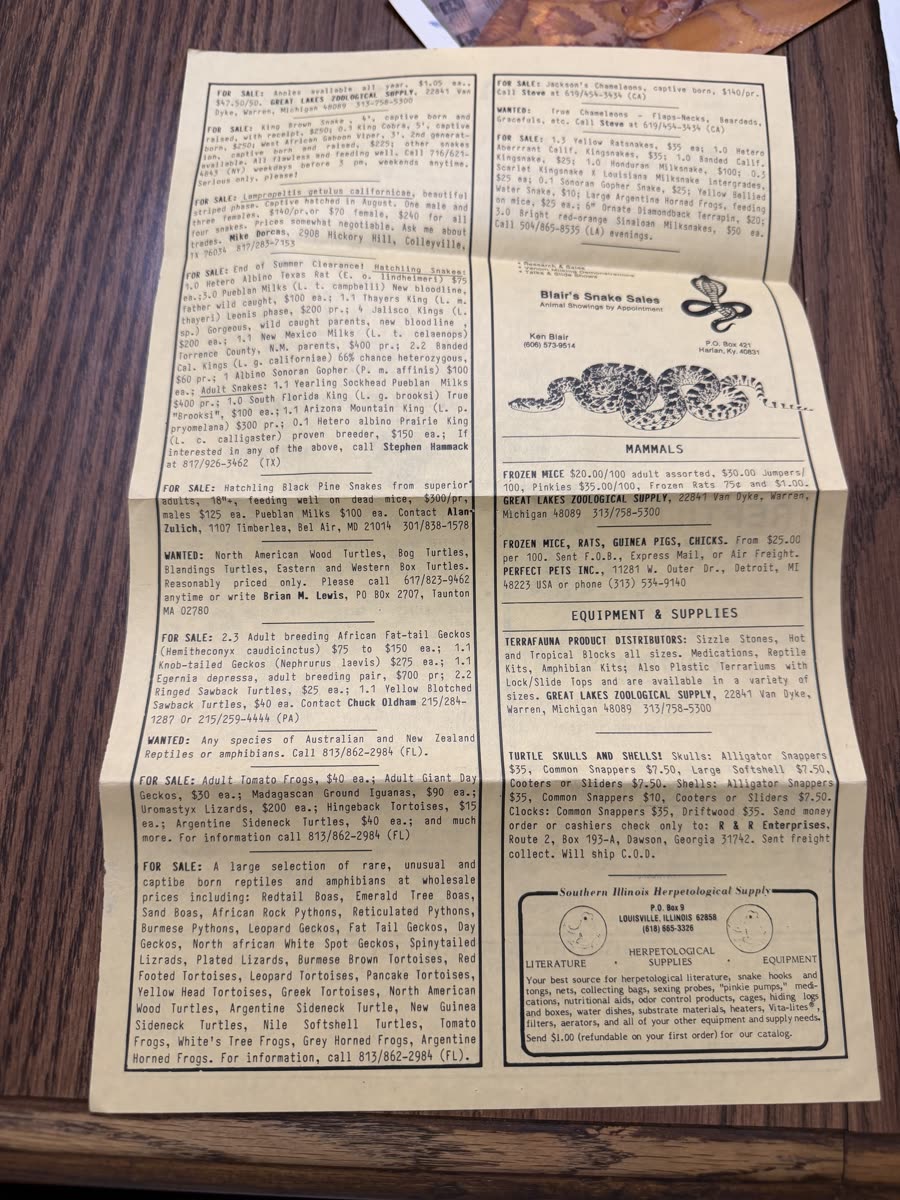 FOR SALE: Anoles available all year, $1.05 ea.,
$47.50/50. GREAT LAKES ZOOLOGICAL SUPPLY, 22841 Van
Dyke, Warren, Michigan 48089 313-758-5300
FOR SALE: King Brown Snake, 4', captive born and
raised, with receipt, $250; 0.1 King Cobra, 5', captive
born, $250; West African Gaboon Viper, 3', 2nd generat-
ion, captive born and raised, $225; other snakes
available. All flawless and feeding well. Call 716/621-
4843 (NY) weekdays before 3 pm, weekends anytime.
Serious only, please!
FOR SALE: Lampropeltis getulus californicae, beautiful
striped phase. Captive hatched in August. One male and
three females, $140/pr.or $70 female, $240 for all
four snakes. Prices somewhat negotiable. Ask me about
trades. Mike Dorcas, 2908 Hickory Hill, Colleyville,
TX 76034 817/283-7153
FOR SALE: End of Summer Clearance! Hatchling Snakes:
1.0 Hetero Albino Texas Rat (E. o. lindheimeri) $75
ea.;3.0 Pueblan Milks (L. t. campbelli) New bloodline,
father wild caught, $100 ea.; 1.1 Thayers King (L. m.
thayeri) Leonis phase, $200 pr.; 4 Jalisco Kings (L.
sp.) Gorgeous, wild caught parents, new bloodline ,
$200 ea.; 1.1 New Mexico Milks (L. t. celaenops)
Torrence County, N.M. parents, $400 pr.; 2.2 Banded
Cal. Kings (L. g. californiae) 66% chance heterozygous,
$60 pr.; 1 Albino Sonoran Gopher (P. m. affinis) $100
ea.; Adult Snakes: 1.1 Yearling Sockhead Pueblan Milks
$400 pr.; 1.0 South Florida King (L. g. brooksi) True
"Brooksi", $100 ea.; 1.1 Arizona Mountain King (L. p.
pryomelana) $300 pr.; 0.1 Hetero albino Prairie King
(L. c. calligaster) proven breeder, $150 ea.; If
interested in any of the above, call Stephen Hammack
at 817/926-3462 (TX)
FOR SALE: Hatchling Black Pine Snakes from superior
adults, 18"+, feeding well on dead mice, $300/pr,
males $125 ea. Pueblan Milks $100 ea. Contact Alan
Zulich, 1107 Timberlea, Bel Air, MD 21014 301/838-1578
WANTED: North American Wood Turtles, Bog Turtles,
Blandings Turtles, Eastern and Western Box Turtles.
Reasonably priced only. Please call 617/823-9462
anytime or write Brian M. Lewis, PO BOx 2707, Taunton
MA 02780
FOR SALE: 2.3 Adult breeding African Fat-tail Geckos
(Hemitheconyx caudicinctus) $75 to $150 ea.; 1.1
Knob-tailed Geckos (Nephrurus laevis) $275 ea.; 1.1
Egernia depressa, adult breeding pair, $700 pr; 2.2
Ringed Sawback Turtles, $25 ea.; 1.1 Yellow Blotched
Sawback Turtles, $40 ea. Contact Chuck Oldham 215/284-
1287 Or 215/259-4444 (PA)
WANTED: Any species of Australian and New Zealand
Reptiles or amphibians. Call 813/862-2984 (FL).
FOR SALE: Adult Tomato Frogs, $40 ea.; Adult Giant Day
Geckos, $30 ea.; Madagascan Ground Iguanas, $90 ea.;
Uromastyx Lizards, $200 ea.; Hingeback Tortoises, $15
ea.; Argentine Sideneck Turtles, $40 ea.; and much
more. For information call 813/862-2984 (FL)
FOR SALE: A large selection of rare, unusual and
captibe born reptiles and amphibians at wholesale
prices including: Redtail Boas, Emerald Tree Boas,
Sand Boas, African Rock Pythons, Reticulated Pythons,
Burmese Pythons, Leopard Geckos, Fat Tail Geckos, Day
Geckos, North african White Spot Geckos, Spinytailed
Lizrads, Plated Lizards, Burmese Brown Tortoises, Red
Footed Tortoises, Leopard Tortoises, Pancake Tortoises,
Yellow Head Tortoises, Greek Tortoises, North American
Wood Turtles, Argentine Sideneck Turtle, New Guinea
Sideneck Turtles, Nile Softshell Turtles, Tomato
Frogs, White's Tree Frogs, Grey Horned Frogs, Argentine
Horned Frogs. For information, call 813/862-2984 (FL).
FOR SALE: Jackson's Chameleons, captive born, $140/pr.
Call Steve at 619/454-3434 (CA)
WANTED: True Chameleons - Flaps-Necks, Bearded's,
Gracefuls, etc. Call Steve at 619/454-3434 (CA)
FOR SALE: 1.3 Yellow Ratsnakes, $35 ea; 1.0 Hetero
Aberrant Calif. Kingsnakes, $35; 1.0 Banded Calif.
Kingsnake, $25; 1.0 Honduran Milksnake, $100; 0.3
Scarlet Kingsnake X Louisiana Milksnake intergrades,
$25 ea; 0.1 Sonoran Gopher Snake, $25; Yellow Bellied
Water Snake, $10; Large Argentine Horned Frogs, feeding
on mice, $25 ea.; 6" Ornate Diamondback Terrapin, $20;
3.0 Bright red-orange Sinaloan Milksnakes, $50 ea.
Call 504/865-8535 (LA) evenings.
• Research & Sales
• Venom Milking Demonstrations
• Talks & Slide Shows
Blair's Snake Sales
Animal Showings by Appointment
Ken Blair
(606) 573-9514
P.O. Box 421
Harlan, Ky. 40831
MAMMALS
FROZEN MICE $20.00/100 adult assorted, $30.00 Jumpers/
100, Pinkies $35.00/100, Frozen Rats 75¢ and $1.00.
GREAT LAKES ZOOLOGICAL SUPPLY, 22841 Van Dyke, Warren,
Michigan 48089 313/758-5300
FROZEN MICE, RATS, GUINEA PIGS, CHICKS. From $25.00
per 100. Sent F.O.B., Express Mail, or Air Freight.
PERFECT PETS INC., 11281 W. Outer Dr., Detroit, MI
48223 USA or phone (313) 534-9140
EQUIPMENT & SUPPLIES
TERRAFAUNA PRODUCT DISTRIBUTORS: Sizzle Stones, Hot
and Tropical Blocks all sizes. Medications, Reptile
Kits, Amphibian Kits; Also Plastic Terrariums with
Lock/Slide Tops and are available in a variety of
sizes. GREAT LAKES ZOOLOGICAL SUPPLY, 22841 Van Dyke,
Warren, Michigan 48089 313/758-5300
TURTLE SKULLS AND SHELLS! Skulls: Alligator Snappers
$35, Common Snappers $7.50, Large Softshell $7.50,
Cooters or Sliders $7.50. Shells: Alligator Snappers
$35, Common Snappers $10, Cooters or Sliders $7.50.
Clocks: Common Snappers $35, Driftwood $35. Send money
order or cashiers check only to: R & R Enterprises,
Route 2, Box 193-A, Dawson, Georgia 31742. Sent freight
collect. Will ship C.O.D.
Southern Illinois Herpetological Supply
P.O. Box 9
LOUISVILLE, ILLINOIS 62858
(618) 665-3326
LITERATURE • HERPETOLOGICAL SUPPLIES • EQUIPMENT
Your best source for herpetological literature, snake hooks and
tongs, nets, collecting bags, sexing probes, "pinkie pumps," medi-
cations, nutritional aids, odor control products, cages, hiding logs
and boxes, water dishes, substrate materials, heaters, Vita-lites®,
filters, aerators, and all of your other equipment and supply needs.
Send $1.00 (refundable on your first order) for our catalog.